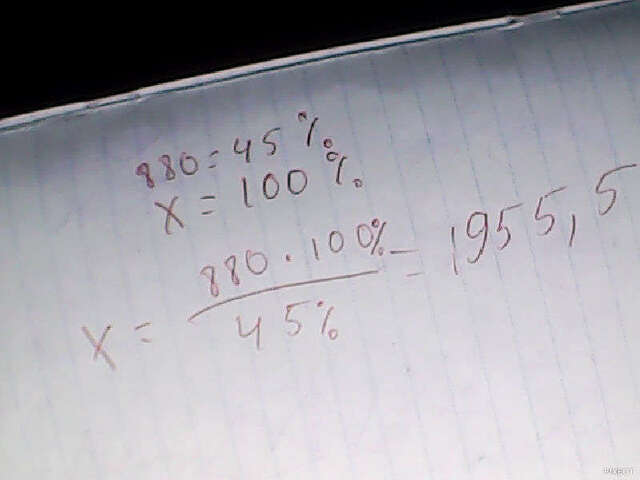 880 = 45 %
X = 100 %
X = 880 · 100% / 45% = 1955,5